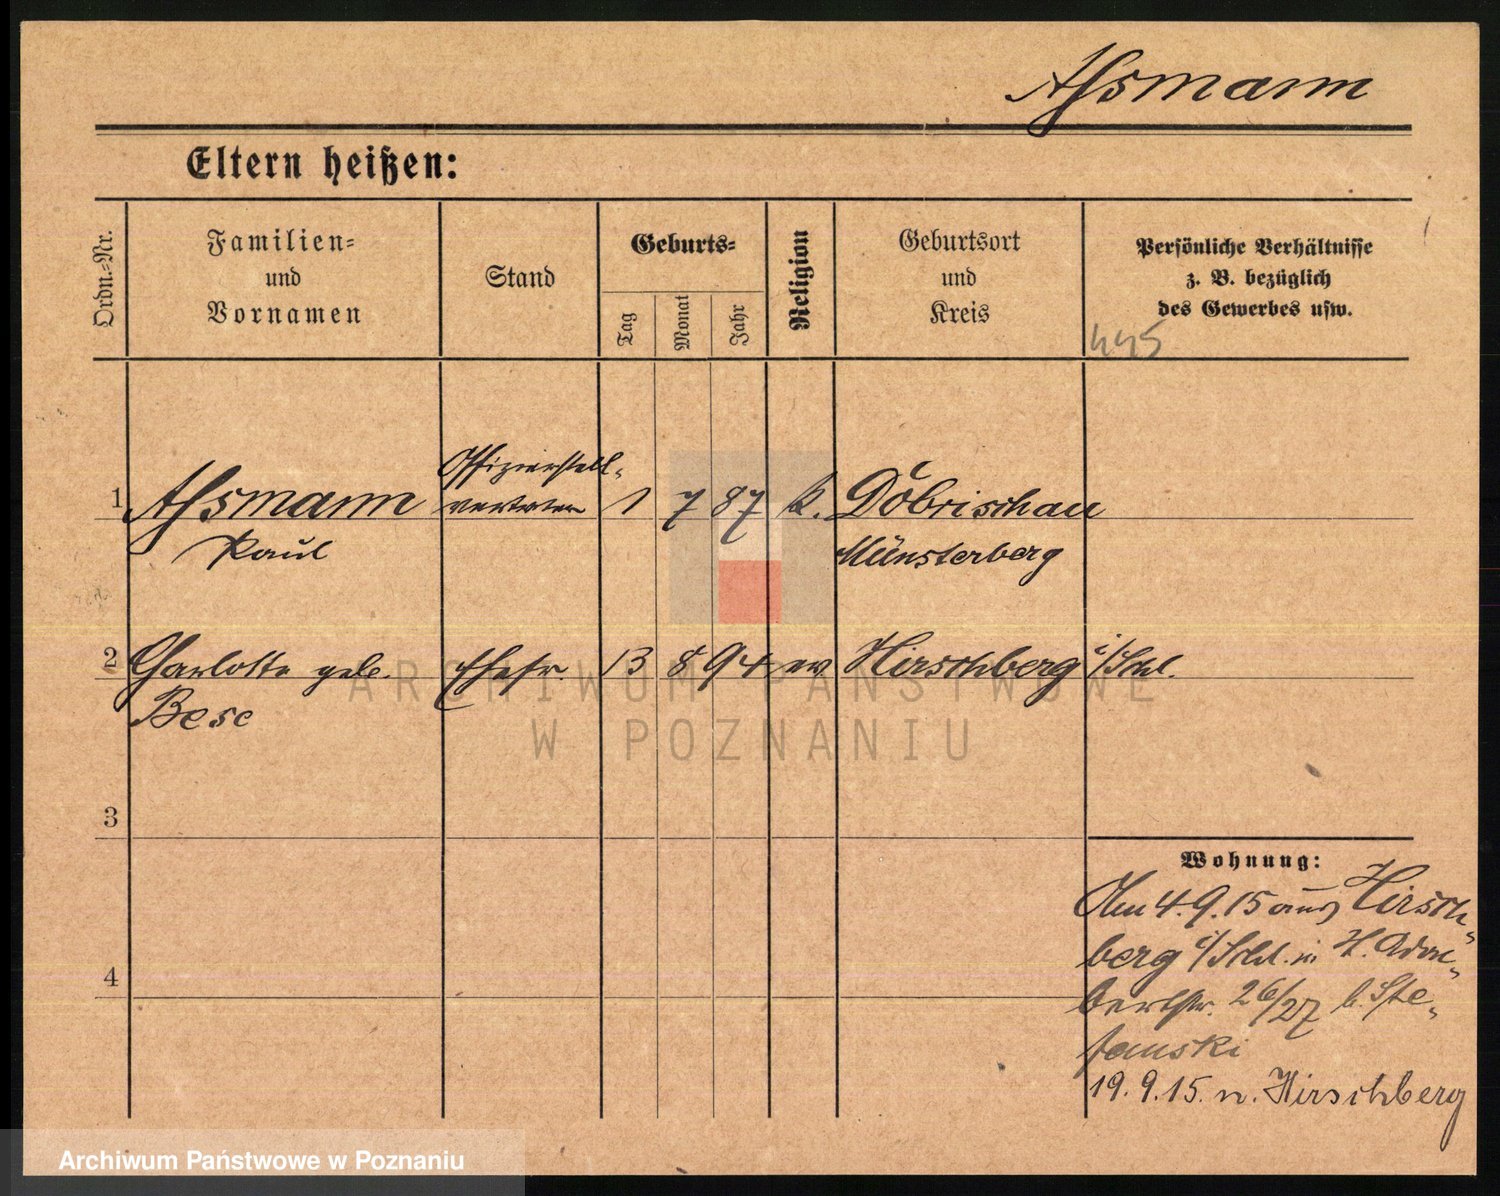 Aßmann
Eltern heißen:
Ordn.-Nr.
Familien-
und
Vornamen
Stand
Geburts-
Tag
Monat
Jahr
Religion
Geburtsort
und
Kreis
Persönliche Verhältnisse
z. B. bezüglich
des Gewerbes usw.
445
1 Aßmann Offizierstell- 1 7 87 k. Döbrischau
vertreter
Paul Münsterberg
2 Charlotte geb. Ehefr. 13 8 94 ev Hirschberg i/Schl.
Bese
3
4
Wohnung:
Am 4.9.15 aus Hirsch-
berg i/Schl. in
26/27 b. Ste-
fanski
19.9.15. n. Hirschberg
ARCHIWUM PAŃSTWOWE
W POZNANIU
Archiwum Państwowe w Poznaniu